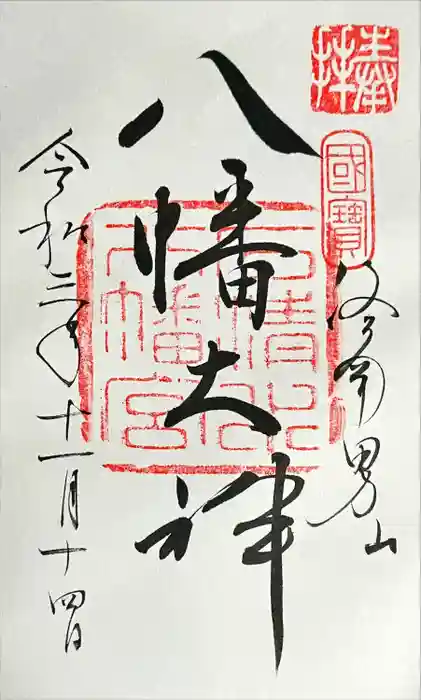 奉拝
國寶
やわた男山
八幡大神
石清水八幡宮
令和三年十一月十四日